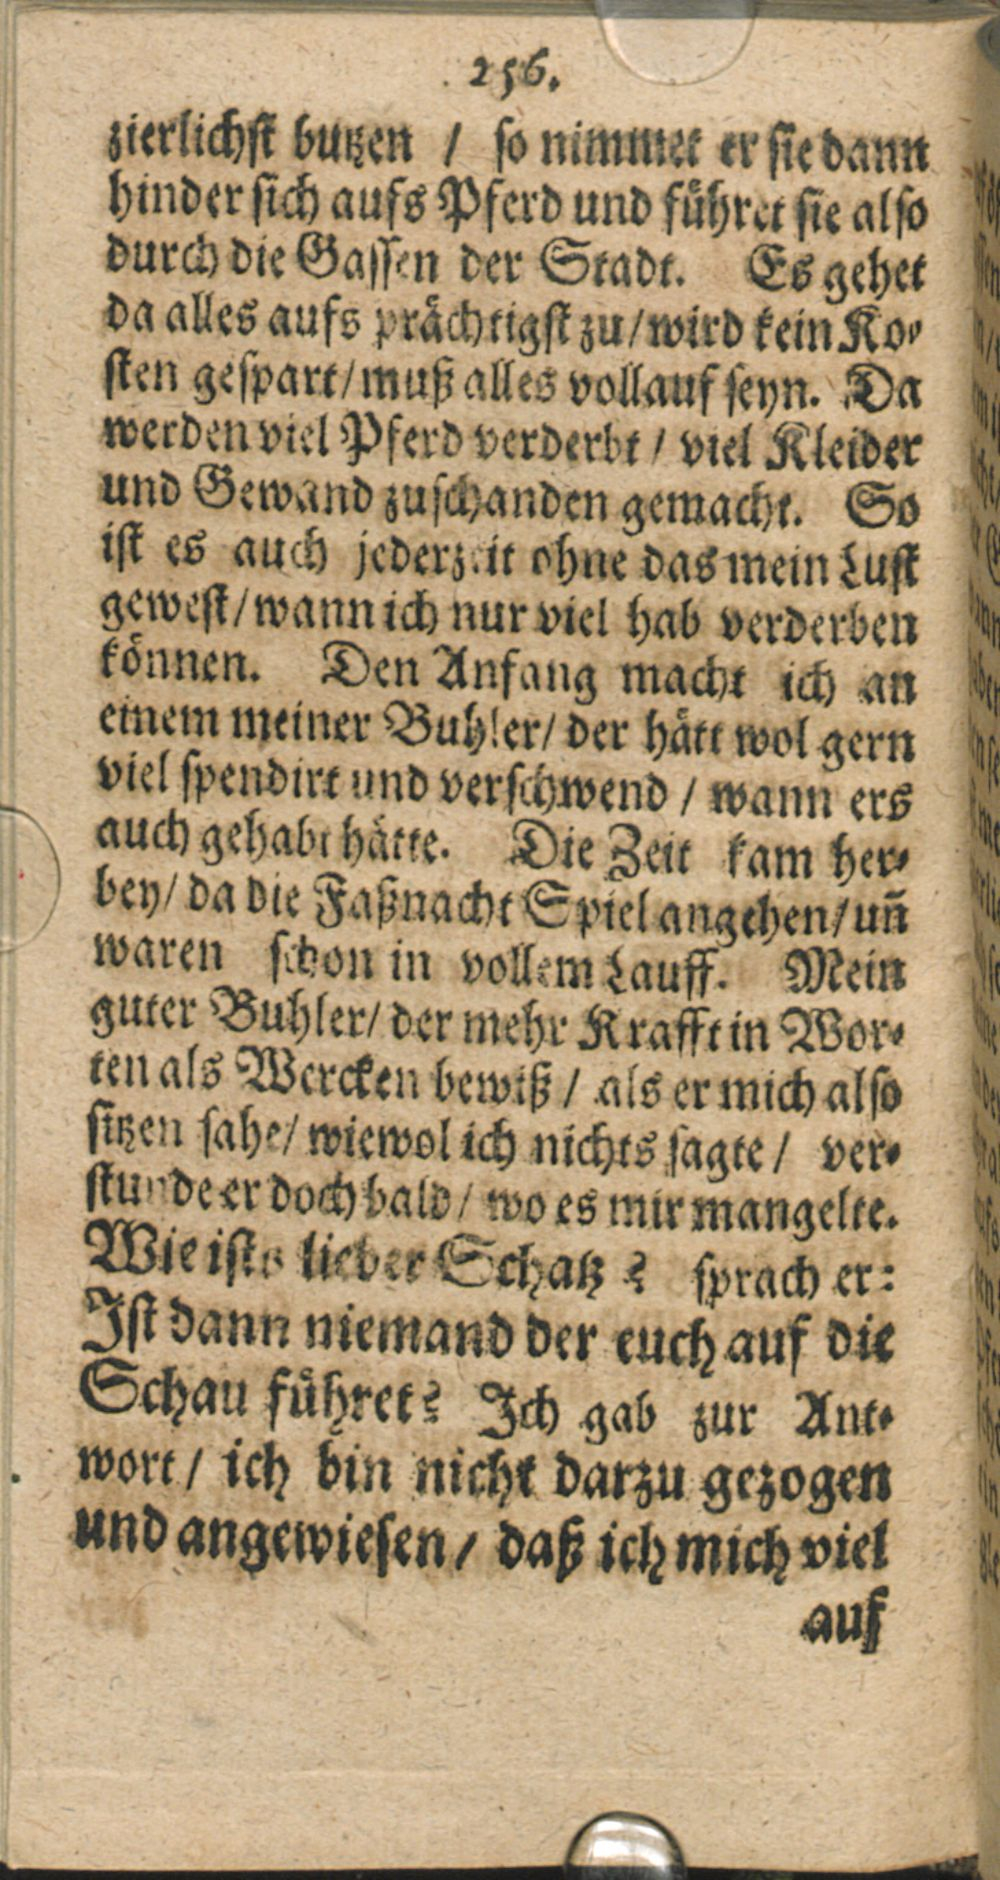 256.
zierlichst butzen / so nimmet er sie dann
hinder sich aufs Pferd und führet sie also
durch die Gassen der Stadt. Es gehet
da alles aufs prächtigst zu / wird kein Ko-
sten gespart / muß alles vollauf seyn. Da
werden viel Pferd verderbt / viel Kleider
und Gewand zuschanden gemacht. So
ist es auch jederzeit ohne das mein Lust
gewest / wann ich nur viel hab verderben
können. Den Anfang macht ich an
einem meiner Buhler / der hätt wol gern
viel spendirt und verschwend / wann ers
auch gehabt hätte. Die Zeit kam her-
bey / da die Faßnacht Spiel angehen / uñ
waren schon in vollem Lauff. Mein
guter Buhler / der mehr Krafft in Wor-
ten als Wercken bewiß / als er mich also
sitzen sahe / wiewol ich nichts sagte / ver-
stunde er doch bald / wo es mir mangelte.
Wie ists lieber Schatz? sprach er:
Ist dann niemand der euch auf die
Schau führet? Ich gab zur Ant-
wort / ich bin nicht darzu gezogen
und angewiesen / daß ich mich viel
auf